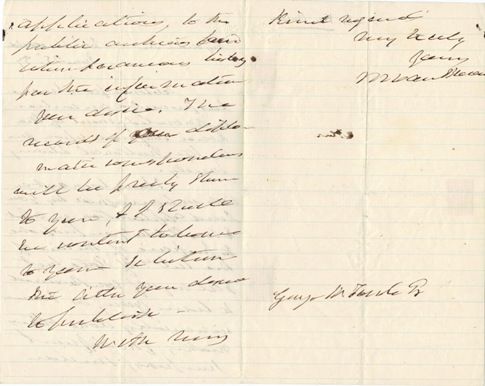 applications, to the
public archives
for the information
you desire. The
records of your diplo
matic correspondence
will be freely shown
to you, & I shall
be content to leave
to your selection
the letter you desire
to publish
With very
Kind regard
very truly
yours
M Van Buren